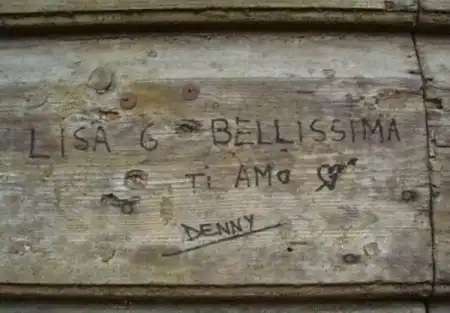 LISA G BELLISSIMA
TI AMO
DENNY